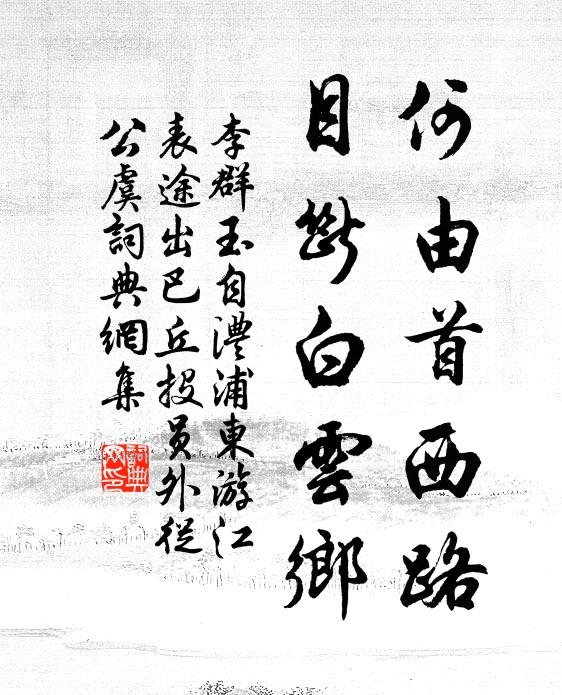 何由首西路
目斷白雲鄉
李群玉自澧浦東游江
表途出巴丘投員外從
公虞詞典網集
詞典
网印